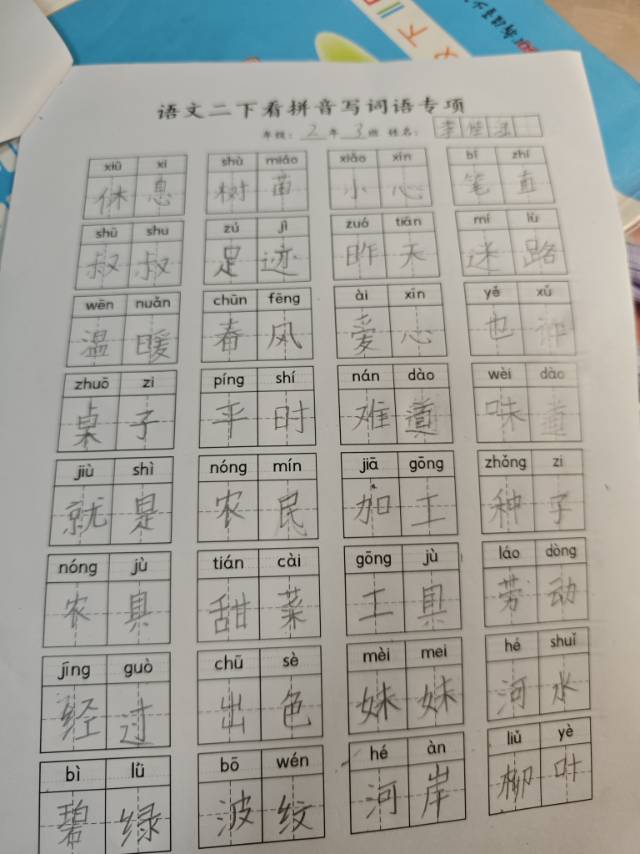 语文二下看拼音写词语专项
年级：2年3班 姓名：李
xiū xi shù miáo xiǎo xīn bǐ zhí
休息 树苗 小心 笔直
shū shu zú jì zuó tiān mí lù
叔叔 足迹 昨天 迷路
wēn nuǎn chūn fēng ài xīn yě xǔ
温暖 春风 爱心 也许
zhuō zi píng shí nán dào wèi dào
桌子 平时 难道 味道
jiù shì nóng mín jiā gōng zhǒng zi
就是 农民 加工 种子
nóng jù tián cài gōng jù láo dòng
农具 甜菜 工具 劳动
jīng guò chū sè mèi mei hé shuǐ
经过 出色 妹妹 河水
bì lǜ bō wén hé àn liǔ yè
碧绿 波纹 河岸 柳叶